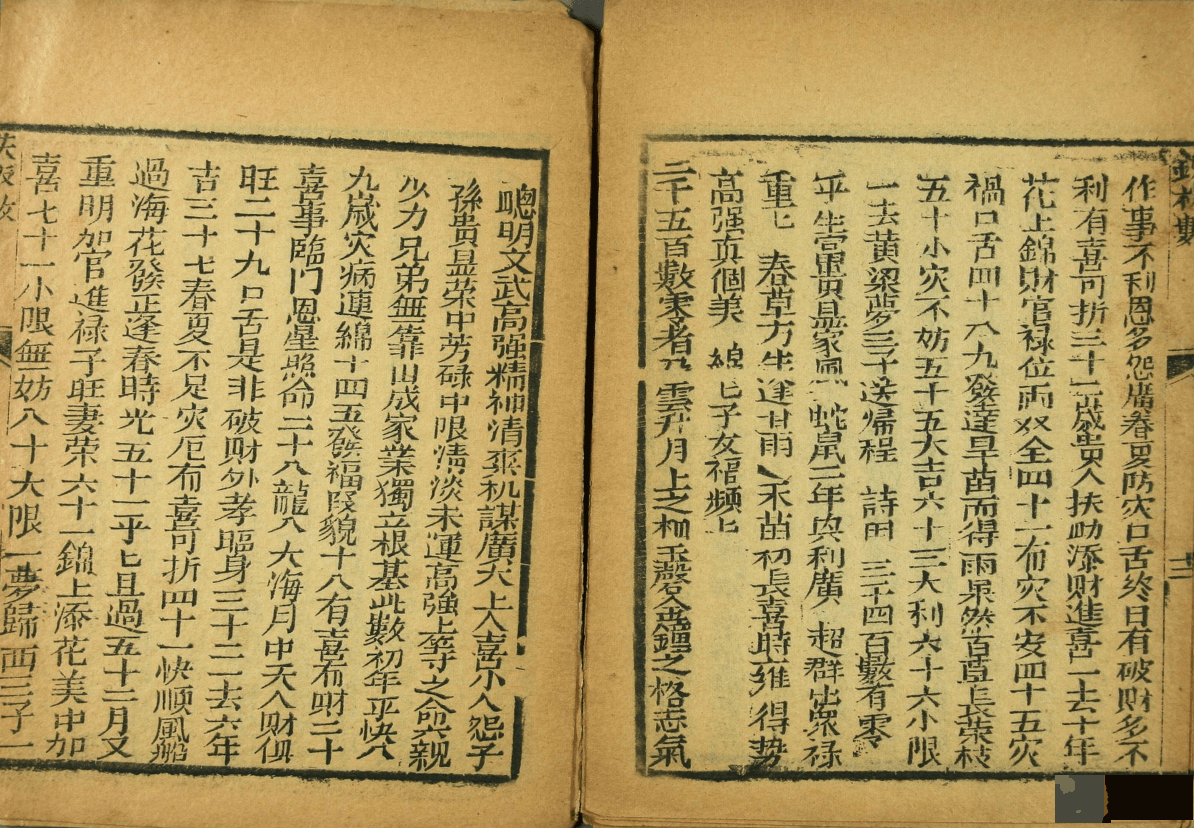 作事不利恩多怨廣春夏防灾口舌終日有破財多不
利有喜可折三十一歲貴人扶助添財進喜一去十年
花上錦財官祿位両双全四十一布灾不安四十五灾
禍口舌四十八九發達旱苗而得雨果然古草長荣枝
五十小灾不妨五十五大吉六十三大利六十六小限
一去黄梁夢三子送歸程 詩曰 三千四百數有零
平生富貴显家風 蛇鼠二年與利廣 超群出衆祿
重七 春草方生逢甘雨 禾苗初長喜時雍 得势
高强真個美 綿七子女福頻上
二千五百數来者 雲外月上之 玉磬金鐘之格志氣
聰明文武高强精神清爽机謀廣大上人喜小人怨子
孫貴显荣中芳碌中限清淡末運高强上等之命六親
少力兄弟無靠自成家業獨立根基此數初年平快八
九歲灾病連綿十四五發福叚貌十八有喜布財二十
喜事臨门恩星照命二十八龍入大海月中天人財俱
旺二十九口舌是非破财外孝臨身三十二一去六年
吉三十七春夏不足灾厄布喜可折四十一快順風船
過海花發正逢春時光五十一平七旦過五十二月又
重明加官進禄子旺妻荣六十一錦上添花美中加
喜七十一小限無妨八十大限一夢歸西三子一